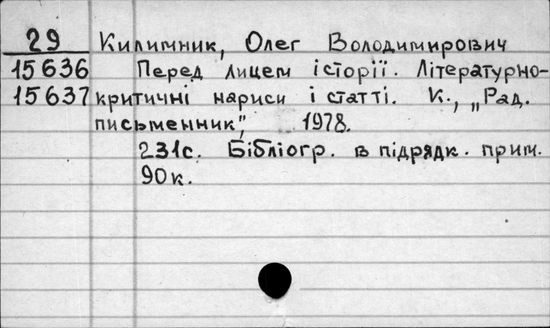 29 Килимник, Олег Володимирович
15636 Перед лицем історії. Літературно-
15637 критичні нариси і статті. К., „Рад.
письменник", 1978.
231с. Бібліогр. в підрядк. прим.
90к.